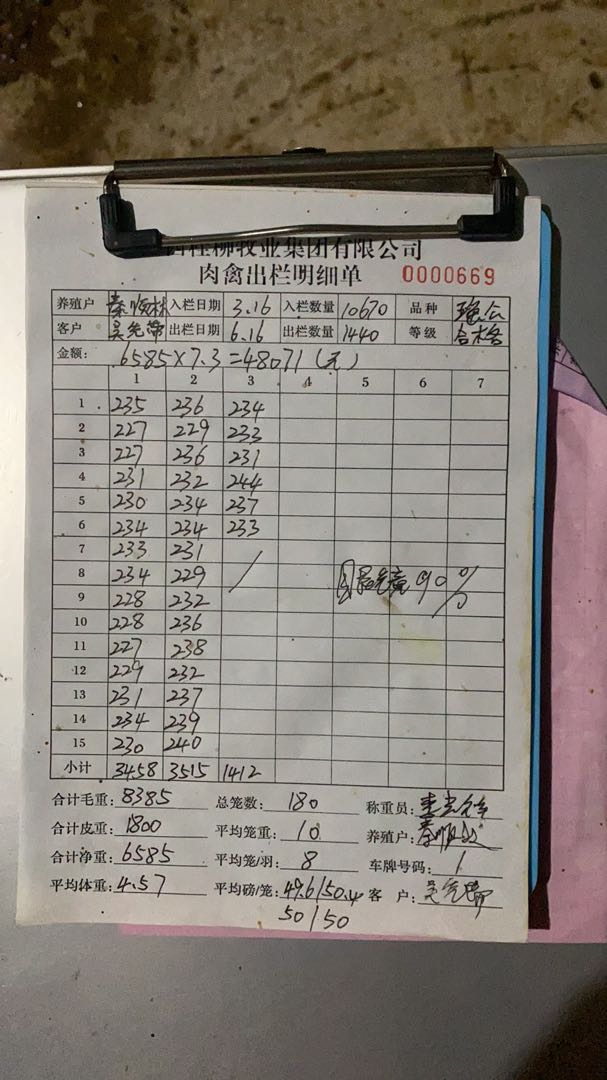 桂柳牧业集团有限公司
肉禽出栏明细单 0000669
养殖户 秦顺林 入栏日期 3.16 入栏数量 10670 品种
客户 出栏日期 6.16 出栏数量 1440 等级 合格
金额: 6585×7.3=48071(元)
1 2 3 4 5 6 7
1 235 236 234
2 227 229 233
3 227 236 231
4 231 232 244
5 230 234 237
6 234 234 233
7 233 231
8 234 229 /
9 228 232
10 228 236
11 227 238
12 229 232
13 231 237
14 234 239
15 230 240
90%
小计 3458 3515 1412
合计毛重: 8385 总笼数: 180 称重员:
合计皮重: 1800 平均笼重: 10 养殖户:
合计净重: 6585 平均笼/羽: 8 车牌号码: 1
平均体重: 4.57 平均磅/笼: 49.6/50.4 客 户:
50/50